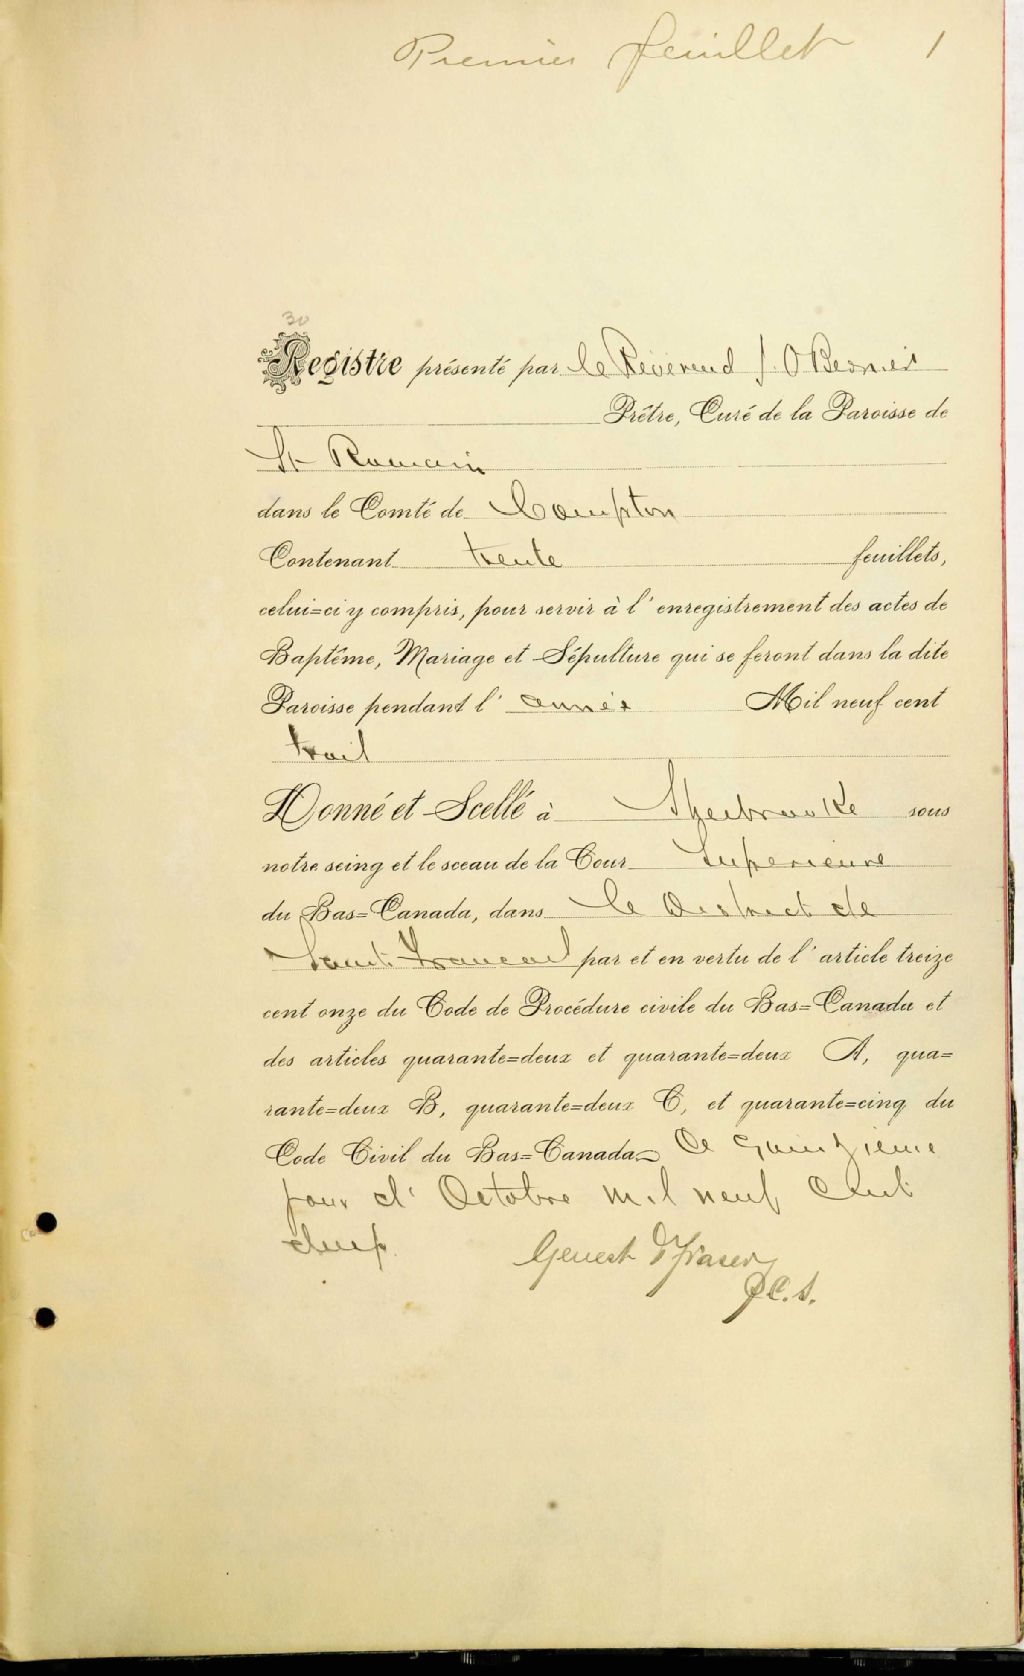 Premier feuillet 1
30
Registre présenté par le Révérend J. O Bernier
Prêtre, Curé de la Paroisse de
St Romain
dans le Comté de Compton
Contenant trente feuillets,
celui=ci y compris, pour servir à l'enregistrement des actes de
Baptême, Mariage et Sépulture qui se feront dans la dite
Paroisse pendant l'année Mil neuf cent
trois
Donné et Scellé à Sherbrooke sous
notre seing et le sceau de la Cour Superieure
du Bas=Canada, dans le District de
Saint François par et en vertu de l'article treize
cent onze du Code de Procédure civile du Bas=Canada et
des articles quarante=deux et quarante=deux A, qua=
rante=deux B, quarante=deux C, et quarante=cinq du
Code Civil du Bas=Canada Ce quinzieme
jour d'Octobre mil neuf Cent
deux
Genest & Fraser
P.C.S.